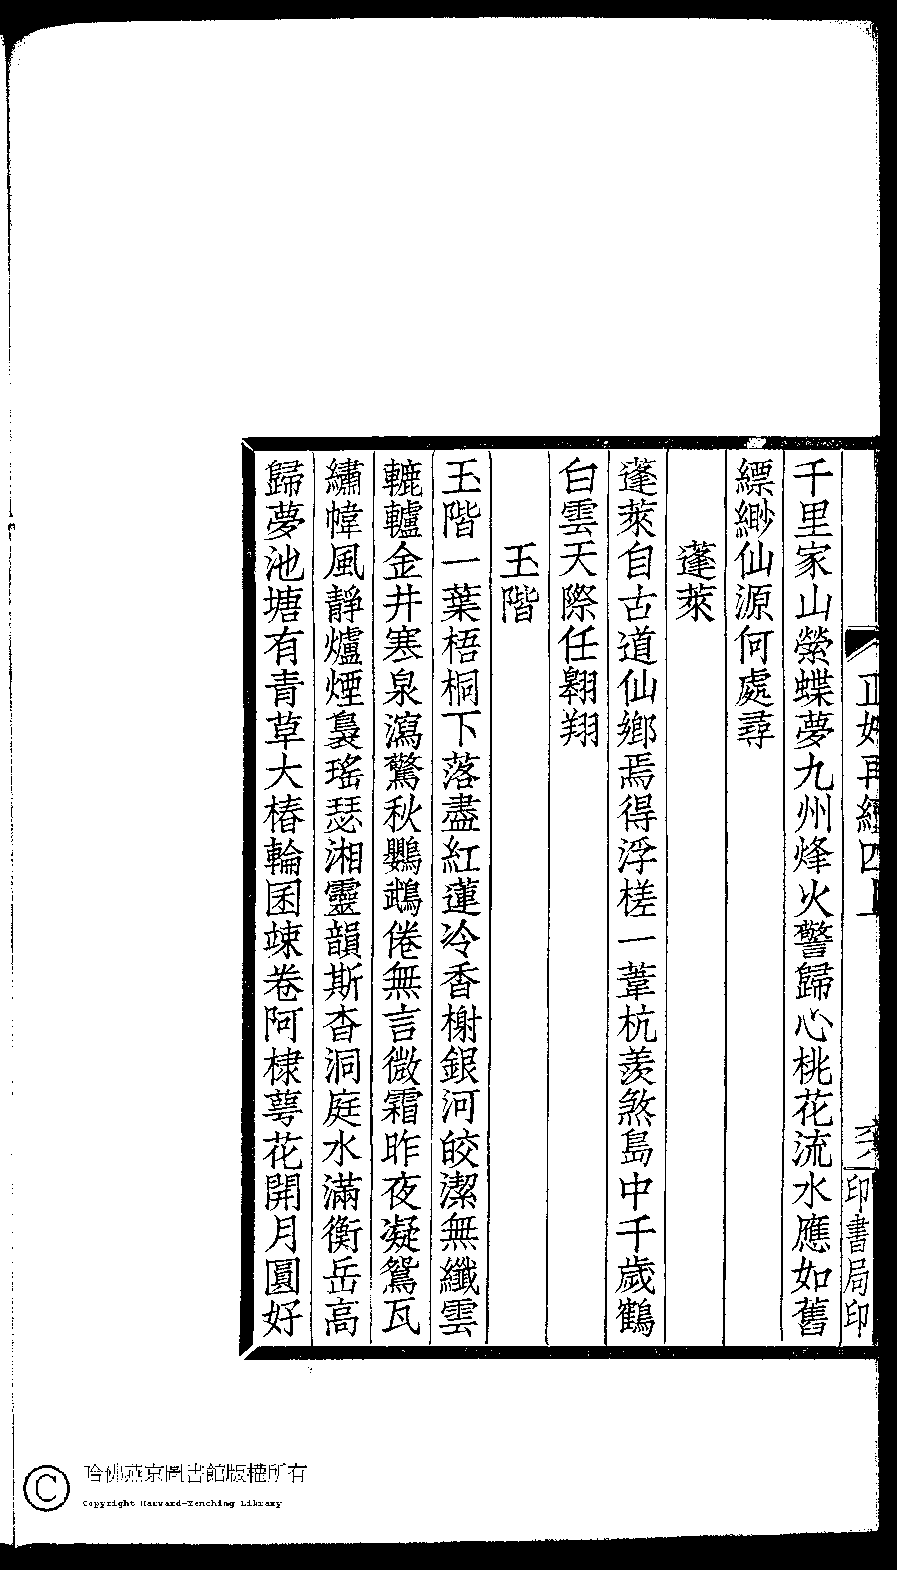 千里家山縈蝶夢九州烽火警歸心桃花流水應如舊
縹緲仙源何處尋
蓬萊
蓬萊自古道仙鄉焉得浮槎一葦杭羨煞島中千歲鶴
白雲天際任翱翔
玉階
玉階一葉梧桐下落盡紅蓮冷香榭銀河皎潔無纖雲
轆轤金井寒泉瀉驚秋鸚鵡倦無言微霜昨夜凝鴛瓦
繡幃風靜爐煙裊瑤瑟湘靈韻斯杳洞庭水滿衡岳高
歸夢池塘有青草大椿輪囷竦卷阿棣萼花開月圓好
印書局印
哈佛燕京圖書館版權所有
Copyright Harvard-Yenching Library